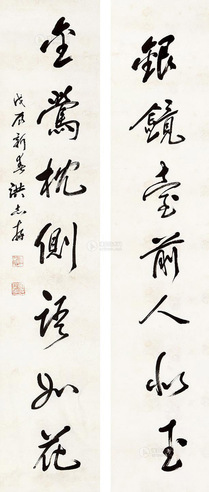 銀鏡臺前人似玉
金鶯枕側語如花
戊辰新春洪